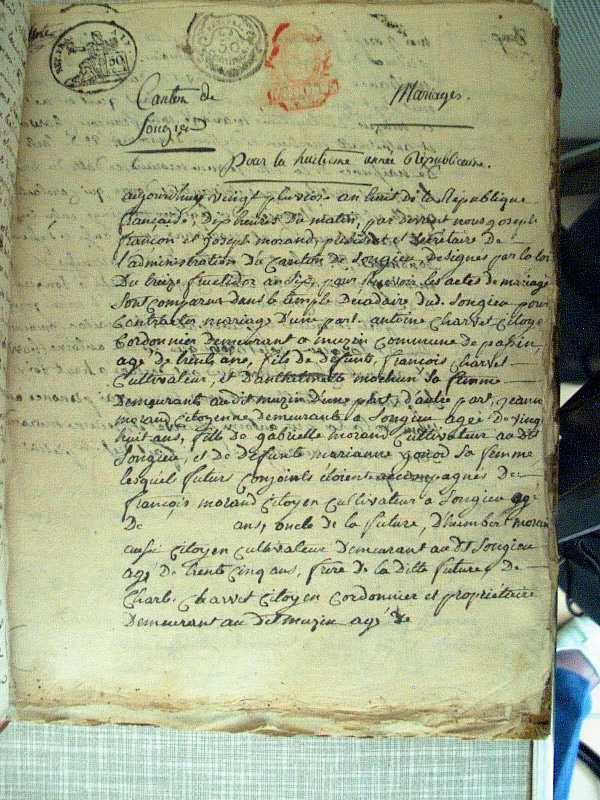 Canton de
Songieu
Mariages.
Pour la huitieme année Républicaine.
aujourdhuy vingt pluviose an huit de la République
française, dix heures du matin, par devant nous joseph
françon et joseph morand, président et secrétaire de
l'administration du Canton de Songieu, designés par la loi
du treize fructidor an six, pour recevoir les actes de mariage
sont comparus dans le temple Decadaire dud. Songieu pour
Contracter mariage d'une part antoine Charvet Citoyen
Cordonnier demeurant a muzin commune de
agé de trente ans, fils de défunts françois Charvet
Cultivateur, et D'anthelmette mochun sa femme
Demeurants au dit muzin d'une part, d'autre part, jeanne
morand Citoyenne demeurante a Songieu agée de vingt
huit ans, fille de gabrielle morand Cultivateur au dit
Songieu, et de défunte marianne gonod sa femme
lesquel futurs Conjoints étoient accompagnés De
françois morand Citoyen Cultivateur a Songieu agé
De ans, oncle de la future, d'humbert morand
aussi Citoyen Cultivateur Demeurant au dt Songieu
agé De trente Cinq ans, frere de la ditte future, De
Charle Charvet Citoyen Cordonnier et propriétaire
Demeurant au dit muzin agé de